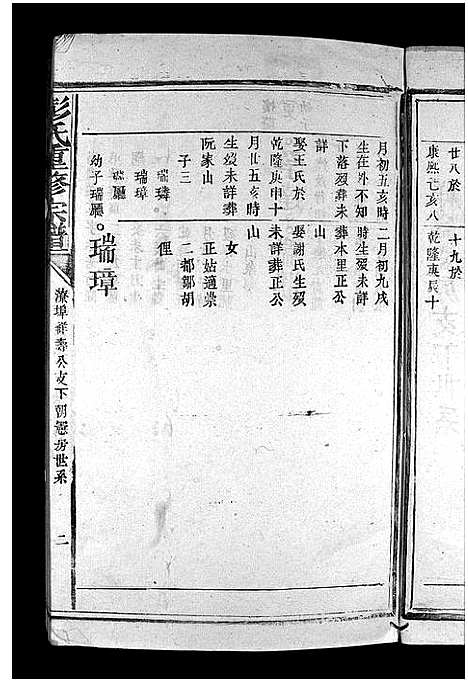 廿八於 十九於
康熙乙亥八 乾隆庚辰十
月初五亥時 二月初九戌
生在外不知 時生歿未詳
下落歿葬未 葬本里正公
詳 山
娶王氏於 娶謝氏生歿
乾隆庚申十 未詳葬正公
月廿五亥時 山
生歿未詳葬 女
阮家山 正姑適崇
子三 二都鄒胡
瑞璘 俚
瑞璋
瑞廳
幼子瑞廳。瑞璋
彭氏重修宗譜 潦埠祥壽公支下朝憲房世系 二